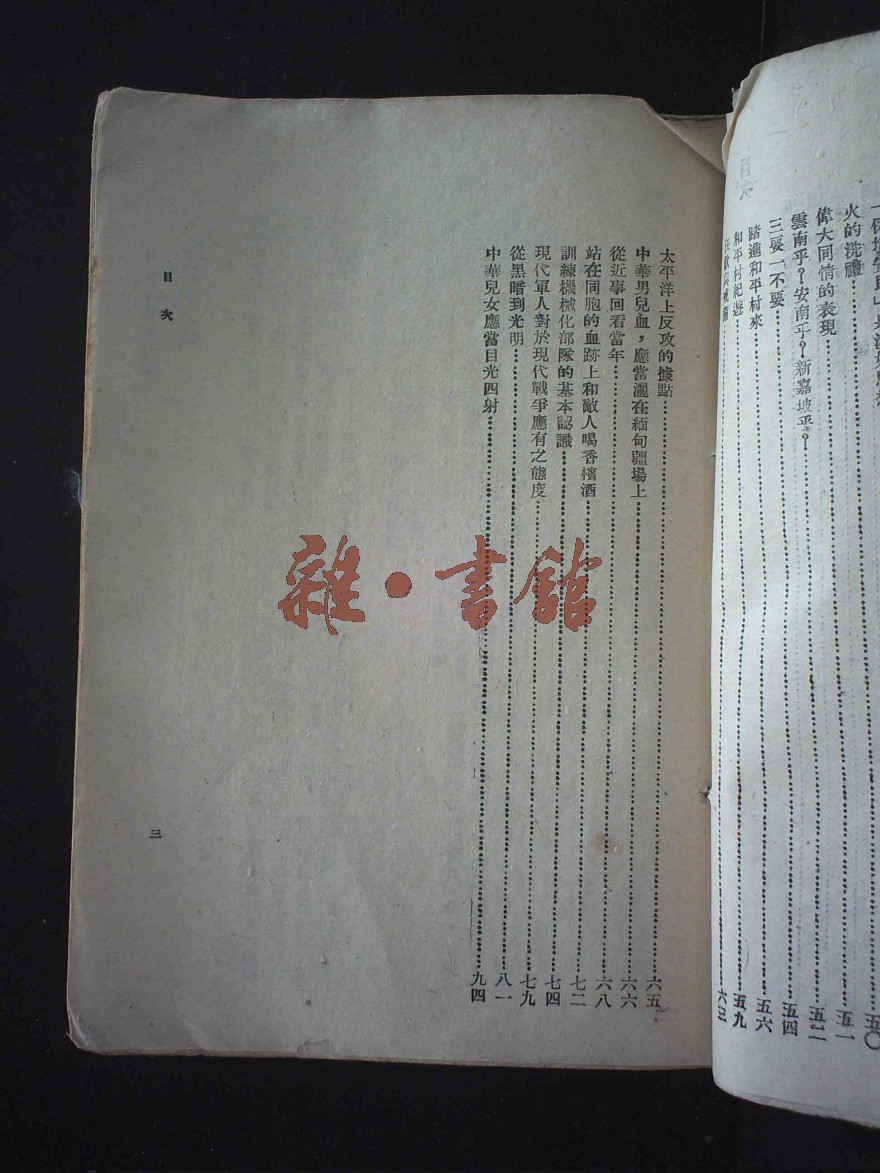 目次
五〇
火的洗禮 五一
偉大同情的表現 五二
雲南乎?安南乎?新嘉坡乎? 五四
三要一不要
踏進和平村來 五六
和平村紀遊 五九
六三
太平洋上反攻的據點 六五
中華男兒血,應當灑在緬甸疆場上 六六
從近事回看當年 六八
站在同胞的血跡上和敵人喝香檳酒 七二
訓練機械化部隊的基本認識 七四
現代軍人對於現代戰爭應有之態度 七九
從黑暗到光明 八一
中華兒女應當目光四射 九四
目次
三
雜·書館